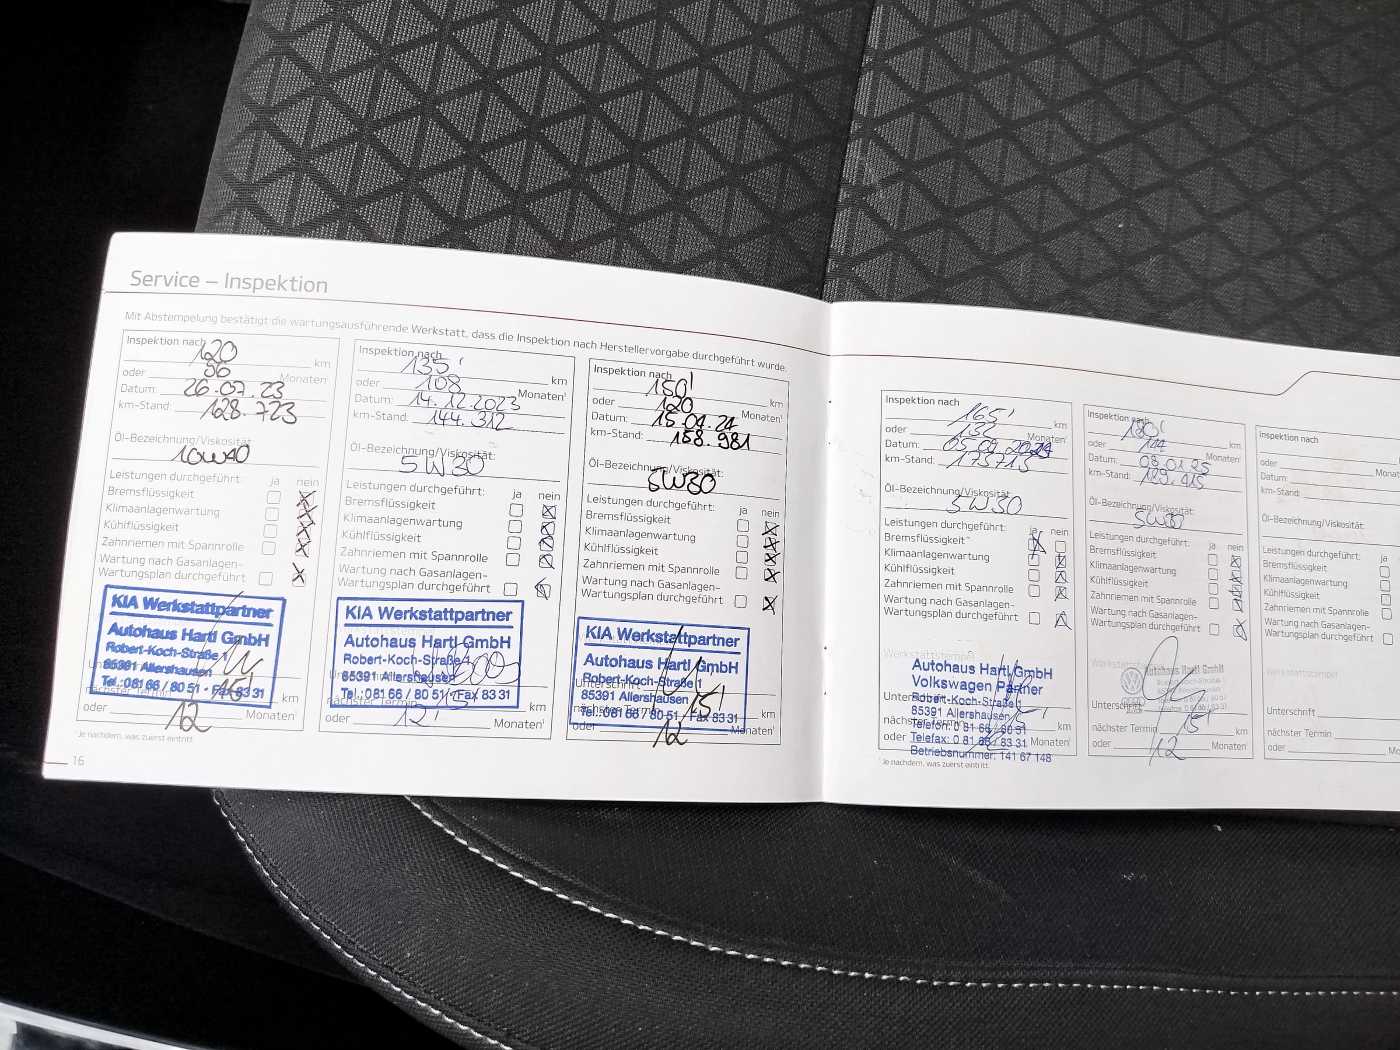 Service – Inspektion
Mit Abstempelung bestätigt die wartungsausführende Werkstatt, dass die Inspektion nach Herstellervorgabe durchgeführt wurde.
Inspektion nach 120 km
oder 96 Monaten¹
Datum: 26.07.23
km-Stand: 128.723
Öl-Bezeichnung/Viskosität:
10W40
Leistungen durchgeführt: ja nein
Bremsflüssigkeit
Klimaanlagenwartung
Kühlflüssigkeit
Zahnriemen mit Spannrolle
Wartung nach Gasanlagen-
Wartungsplan durchgeführt
KIA Werkstattpartner
Autohaus Hartl GmbH
Robert-Koch-Straße 1
85391 Allershausen
Tel.: 081 66 / 80 51 · Fax 83 31
nächster Termin km
oder 12 Monaten¹
¹Je nachdem, was zuerst eintritt.
16
Inspektion nach 135' km
oder 108 Monaten¹
Datum: 14.12.2023
km-Stand: 144.312
Öl-Bezeichnung/Viskosität:
5W30
Leistungen durchgeführt: ja nein
Bremsflüssigkeit
Klimaanlagenwartung
Kühlflüssigkeit
Zahnriemen mit Spannrolle
Wartung nach Gasanlagen-
Wartungsplan durchgeführt
KIA Werkstattpartner
Autohaus Hartl GmbH
Robert-Koch-Straße 1
85391 Allershausen
Tel.: 081 66 / 80 51 · Fax 83 31
nächster Termin 15' km
oder 12' Monaten¹
Inspektion nach 150' km
oder 120 Monaten¹
Datum: 15.04.24
km-Stand: 158.981
Öl-Bezeichnung/Viskosität:
5W30
Leistungen durchgeführt: ja nein
Bremsflüssigkeit
Klimaanlagenwartung
Kühlflüssigkeit
Zahnriemen mit Spannrolle
Wartung nach Gasanlagen-
Wartungsplan durchgeführt
KIA Werkstattpartner
Autohaus Hartl GmbH
Robert-Koch-Straße 1
85391 Allershausen
Tel.: 081 66 / 80 51 · Fax 83 31
Unterschrift
nächster Termin 15' km
oder 12 Monaten¹
Inspektion nach 165' km
oder 132 Monaten¹
Datum: 05.09.2024
km-Stand: 173715
Öl-Bezeichnung/Viskosität:
5W30
Leistungen durchgeführt: ja nein
Bremsflüssigkeit
Klimaanlagenwartung
Kühlflüssigkeit
Zahnriemen mit Spannrolle
Wartung nach Gasanlagen-
Wartungsplan durchgeführt
Werkstattstempel
Autohaus Hartl GmbH
Volkswagen Partner
Robert-Koch-Straße 1
85391 Allershausen
Telefon: 0 81 66 / 80 51
Telefax: 0 81 66 / 83 31
Betriebsnummer: 141 67 148
Unterschrift
nächster Termin km
oder Monaten¹
¹Je nachdem, was zuerst eintritt.
Inspektion nach 180' km
oder Monaten¹
Datum: 08.01.25
km-Stand:
Öl-Bezeichnung/Viskosität:
5W30
Leistungen durchgeführt: ja nein
Bremsflüssigkeit
Klimaanlagenwartung
Kühlflüssigkeit
Zahnriemen mit Spannrolle
Wartung nach Gasanlagen-
Wartungsplan durchgeführt
Werkstattstempel
Autohaus Hartl GmbH
Unterschrift
nächster Termin 15' km
oder 12 Monaten¹
Inspektion nach
oder
Datum:
km-Stand:
Öl-Bezeichnung/Viskosität:
Leistungen durchgeführt: ja
Bremsflüssigkeit
Klimaanlagenwartung
Kühlflüssigkeit
Zahnriemen mit Spannrolle
Wartung nach Gasanlagen-
Wartungsplan durchgeführt
Werkstattstempel
Unterschrift
nächster Termin
oder